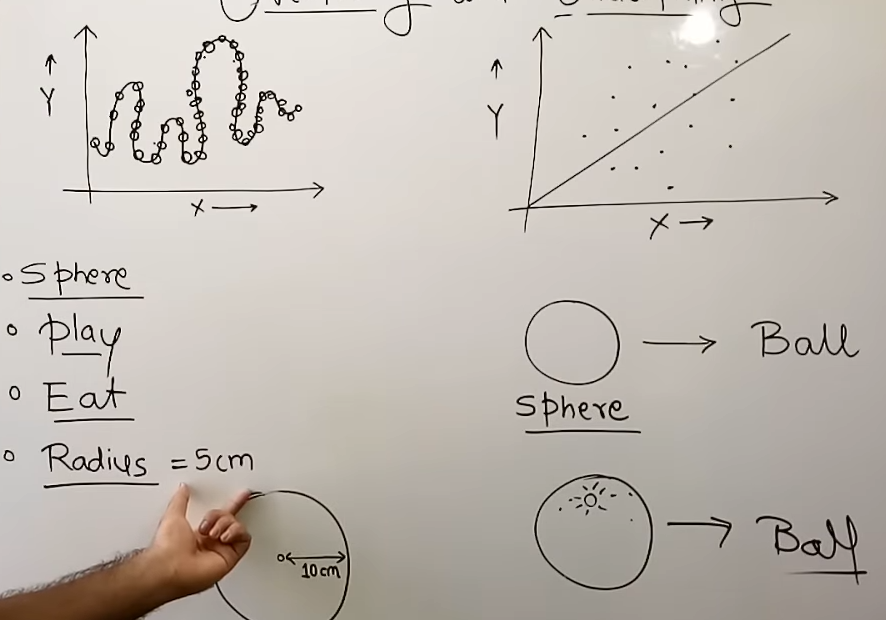 Y
X →
Sphere
Play
Eat
Radius = 5cm
10cm
Y
X →
→ Ball
Sphere
→ Ball